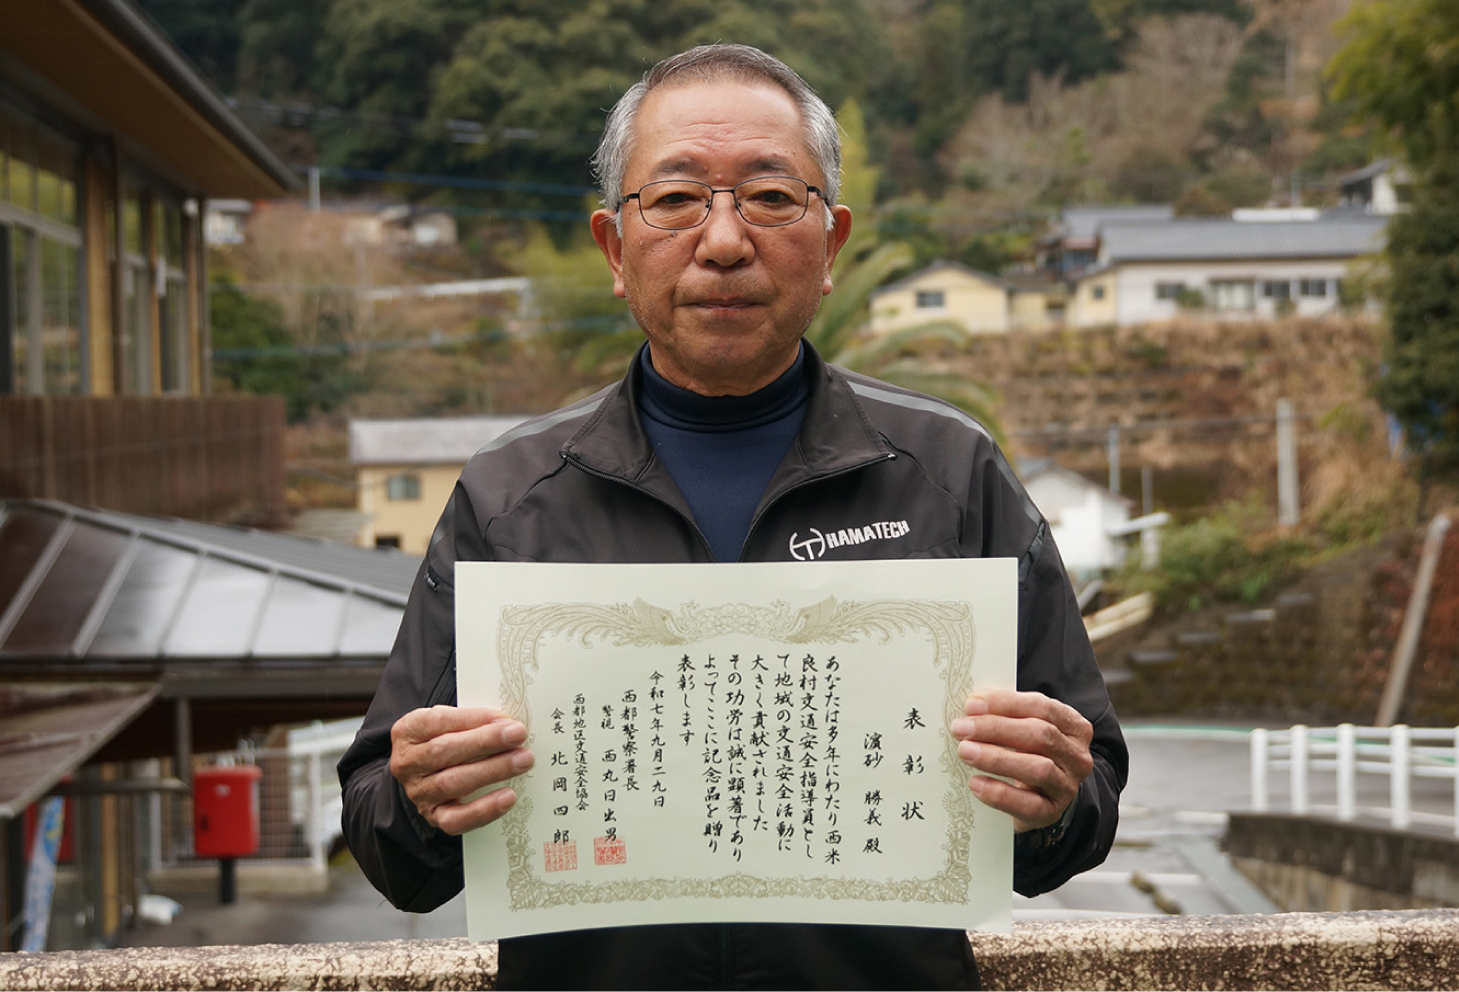 HAMATECH
表彰状
濵砂 勝義 殿
あなたは多年にわたり西米
良村交通安全指導員とし
て地域の交通安全活動に
大きく貢献されました
その功労は誠に顕著であり
よってここに記念品を贈り
表彰します
令和七年九月二九日
西都警察署長
警視 西丸日出男
西都地区交通安全協会
会長 北岡四郎